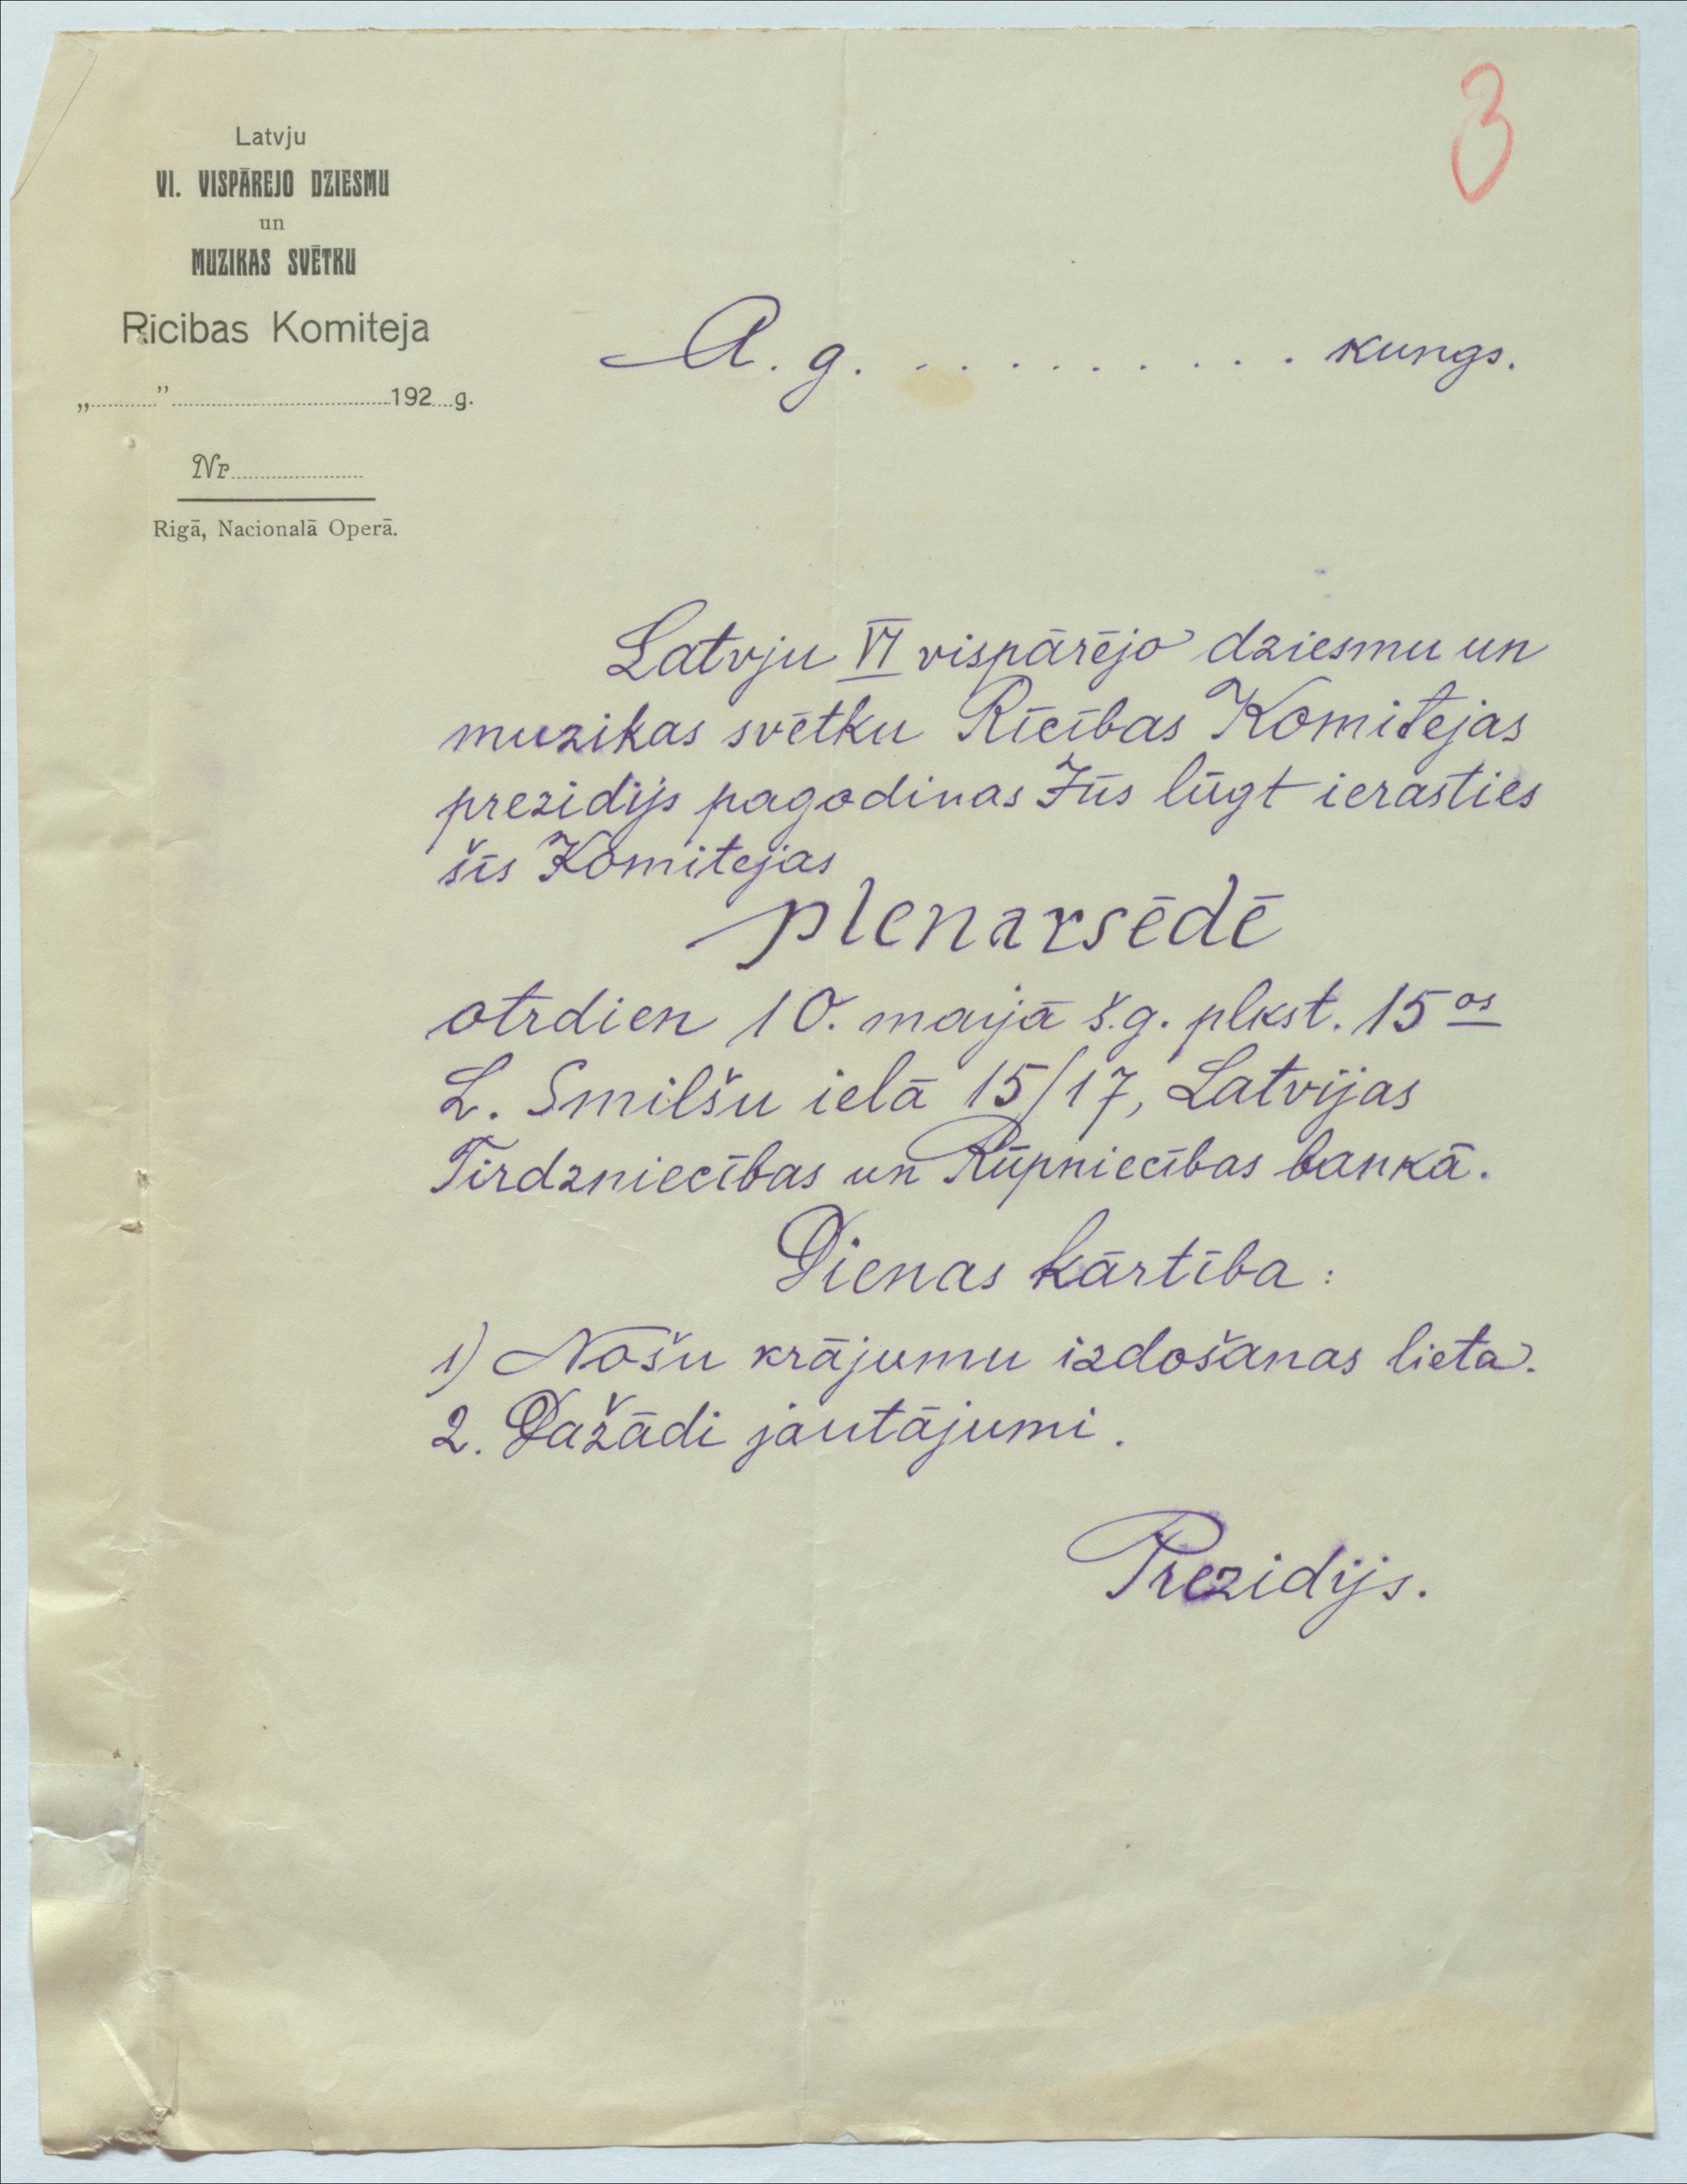 3
Latvju
VI. VISPĀREJO DZIESMU
un
MUZIKAS SVĒTKU
Ricibas Komiteja
„..........”..............................192....g.
Nr....................
Rigā, Nacionalā Operā.
A. g. . . . . . . . . . . kungs.
Latvju VI vispārējo dziesmu un
muzikas svētku Rīcības Komitejas
prezidijs pagodinas Jūs lūgt ierasties
šīs Komitejas
plenarsēdē
otrdien 10. maijā š.g. plkst. 15 os
L. Smilšu ielā 15/17, Latvijas
Tirdzniecības un Rūpniecības bankā.
Dienas kārtība:
1) Nošu krājumu izdošanas lieta.
2. Dažādi jautājumi.
Prezidijs.